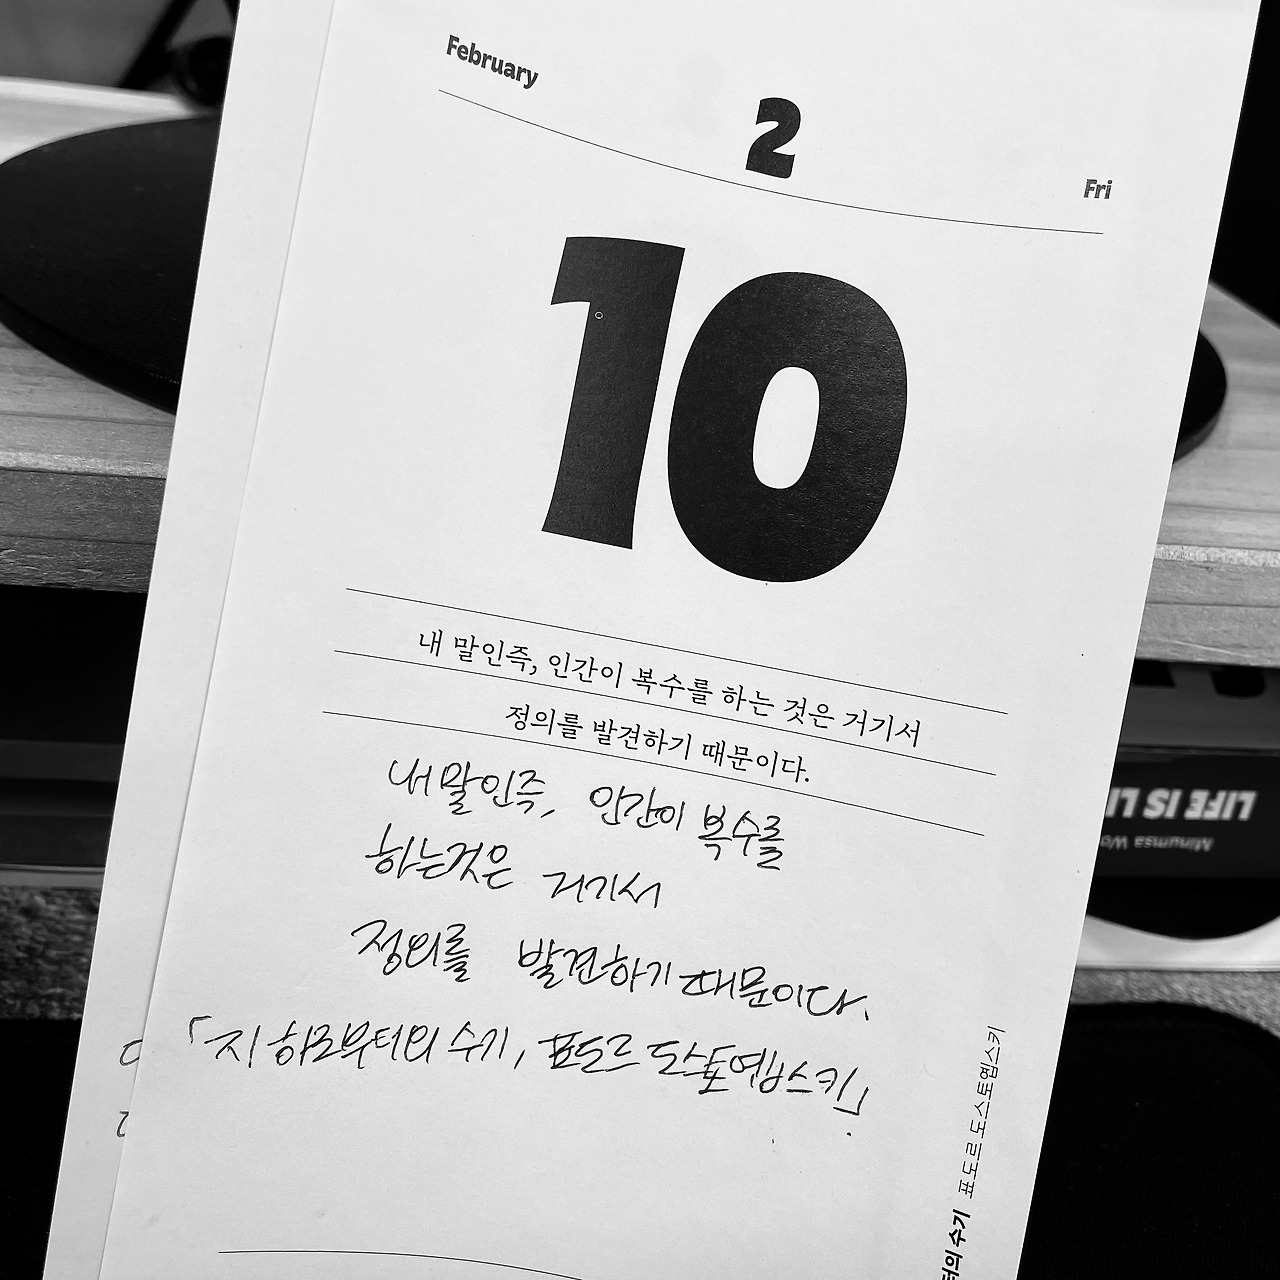 February
2
Fri
10
내 말인즉, 인간이 복수를 하는 것은 거기서
정의를 발견하기 때문이다.
내 말인즉, 인간이 복수를
하는것은 거기서
정의를 발견하기 때문이다.
「지하로부터의 수기, 표도르 도스토옙스키」
터의 수기 표도르 도스토옙스키
LIFE IS LI
Minumsa Wo